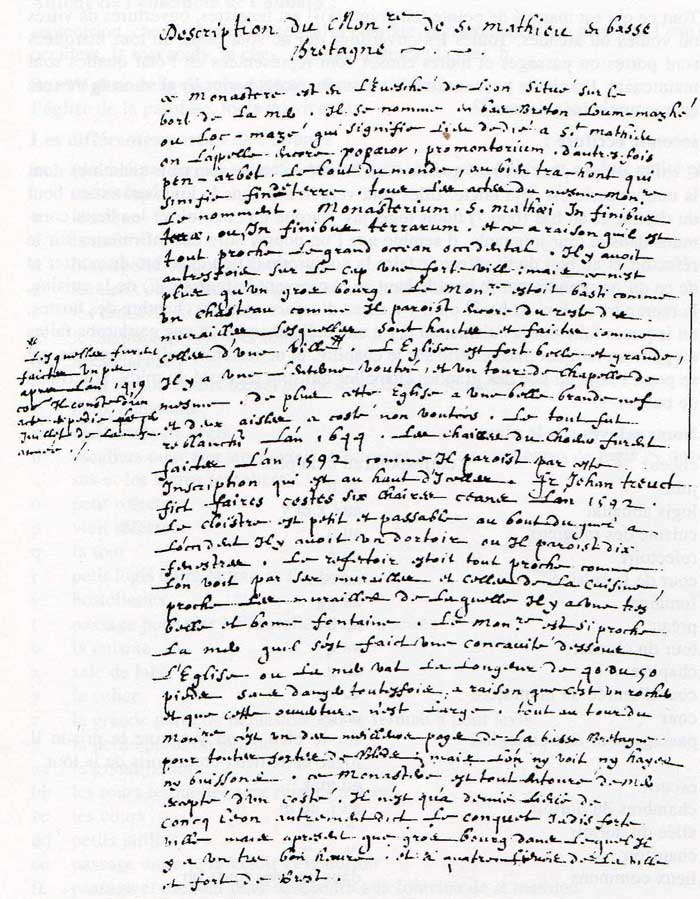 Description du Mon.re de S. Mathieu en basse
Bretagne.
Ce Mon.re est en L'Euesché de Leon situé sur le
bort de la mer. Il se nomme en bas Breton Loumazhé
ou Loc-mazé qui signifie lieu dedié a S. mathieu
on Lappelle Loc-Mazé promontorium Sancti
pen ar bed Le bout du monde, ou bien tra, hont
signifie fin de terre. tous Les actes du mesme mon.re
Le nomment Monasterium S. mathæi in finibus
terræ, ou Jn finibus terrarum, et a raison qu'il est
tout proche un grand Cap. Il y auoit
autrefois sur Le cap vne forte ville, mais ce n'est
plus qu'vn gros bourg. Le Mon.re estoit basti comme
vn chasteau comme Il paroist encore du reste des
murailles Lesquelles sont hautes et faites comme
celles d'vne ville # L'Eglise est fort belle et grande,
Il y a vne Lanterne voutée, et vn tour de chapelle de
mesme de plus cette Eglise a vne belle grande nef
et deux aisles a costé non voutées. Le tout fut
reblanchi L'an 1644. Les chaises du Choeur furent
faites L'an 1592. comme Il paroist par cette
Inscription qui est au haut d'Jcelles. Fr Jehan treuct
fict faires cestes six chaires ceans. L'an 1592.
Le cloistre est petit et passable. au bout duquel a
L'occident Il y auoit vn dortoir ou Il paroist dix
fenestres. Le refectoir estoit tout proche comme
L'on voit par ses murailles, et celles de La cuisine,
proche Les murailles de Laquelle Il y a vne tres
belle et bonne fontaine. Le Mon.re est si proche
La mer quil s'est fait vne concauité dessous
L'Eglise ou La mer vat La Longueur de 40 ou 50
pieds sans danger toutesfois, a raison que c'est vn roche
et que cette ouuerture n'est large. tout au tour du
Mon.re c'est vn des meilleurs pays de La basse Bretagne
pour La fertilité des bleds, mais L'on n'y voit ny hayes
ny buissons. ce Monastere est tout entouré de mer
excepté d'vn costé. Il n'est qu'a demie Lieue de
Concq Leon, autrement dit Le conquet Jadis forte
ville mais a present que gros bourg dans Lequel Il
y a vn tres bon haure. et a quatre Lieues de La ville
et fort de Brest.
# Lesquelles furent
faites vn peu
apres L'an 1419
Juillet de La mesme
année.